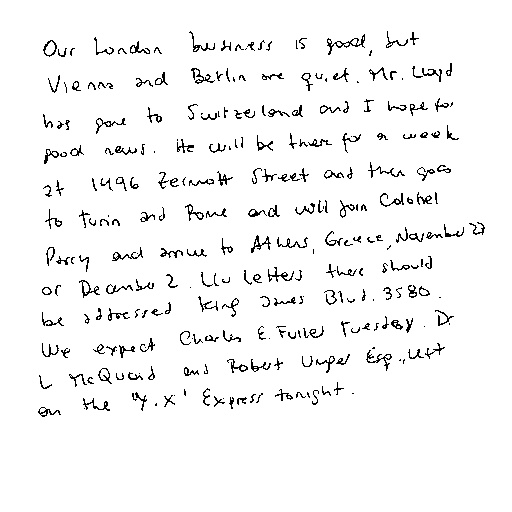 Our London business is good, but
Vienna and Berlin are quiet. Mr. Lloyd
has gone to Switzerland and I hope for
good news. He will be there for a week
at 1496 Zermott Street and then goes
to Turin and Rome and will join Colonel
Parry and arrive to Athens, Greece, November 27
or December 2. Letters there should
be addressed King James Blvd. 3580.
We expect Charles E. Fuller Tuesday. Dr
L McQuaid and Robert Unger Esq., left
on the "Y.X" Express tonight.